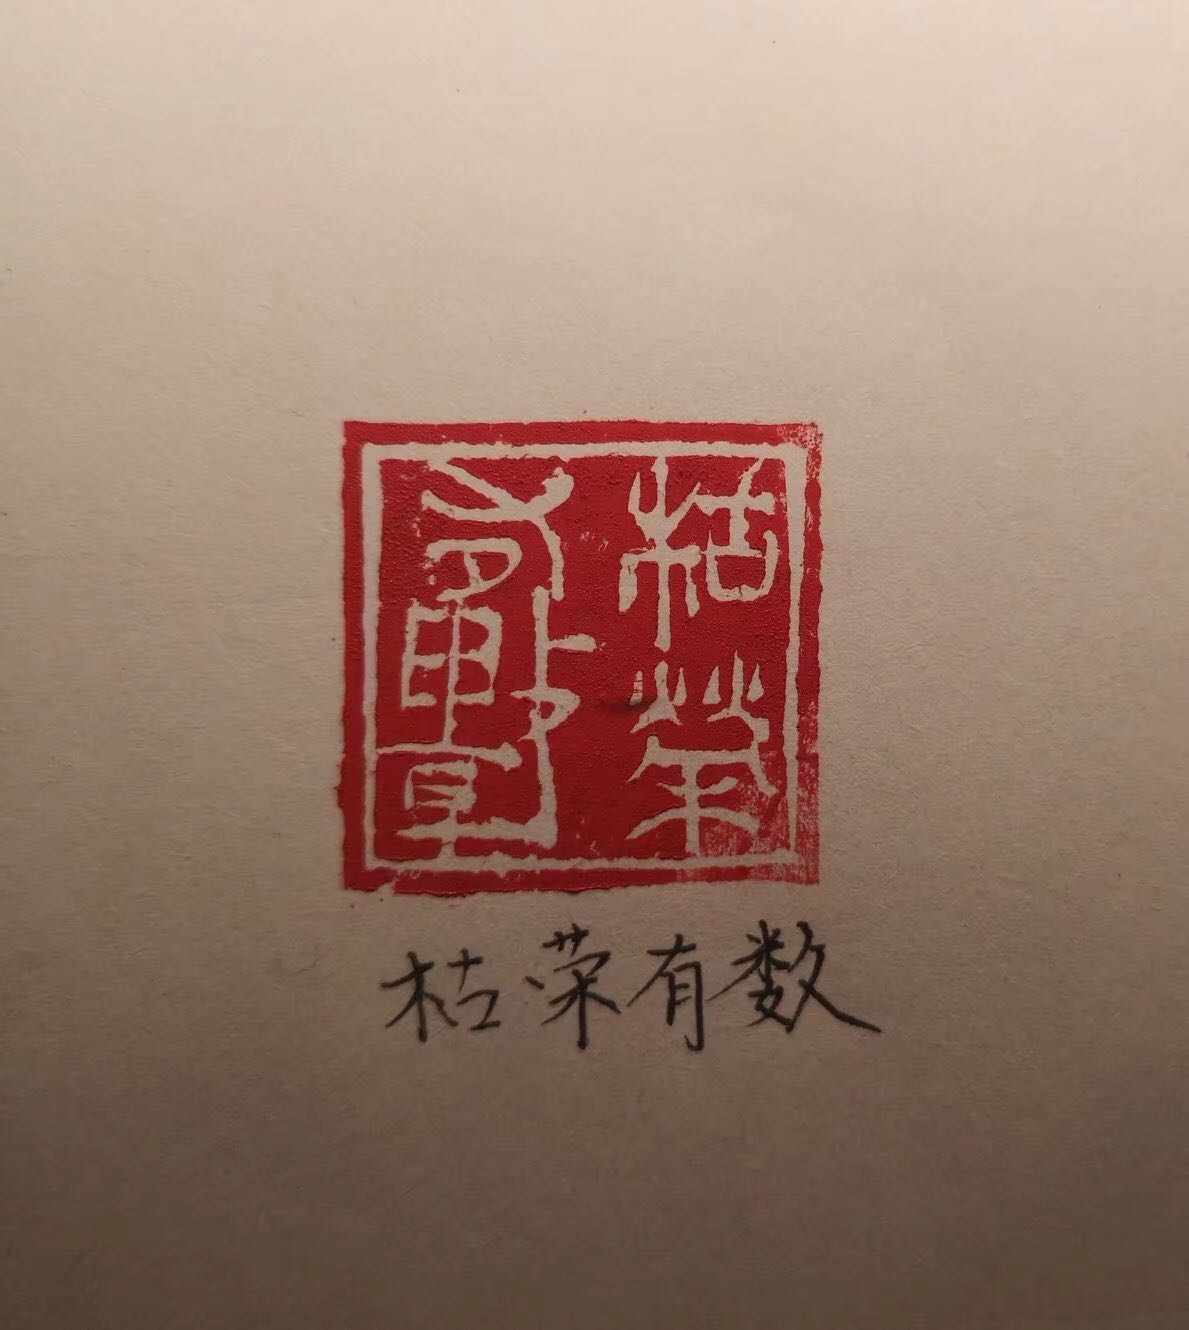 枯榮有數
枯荣有数